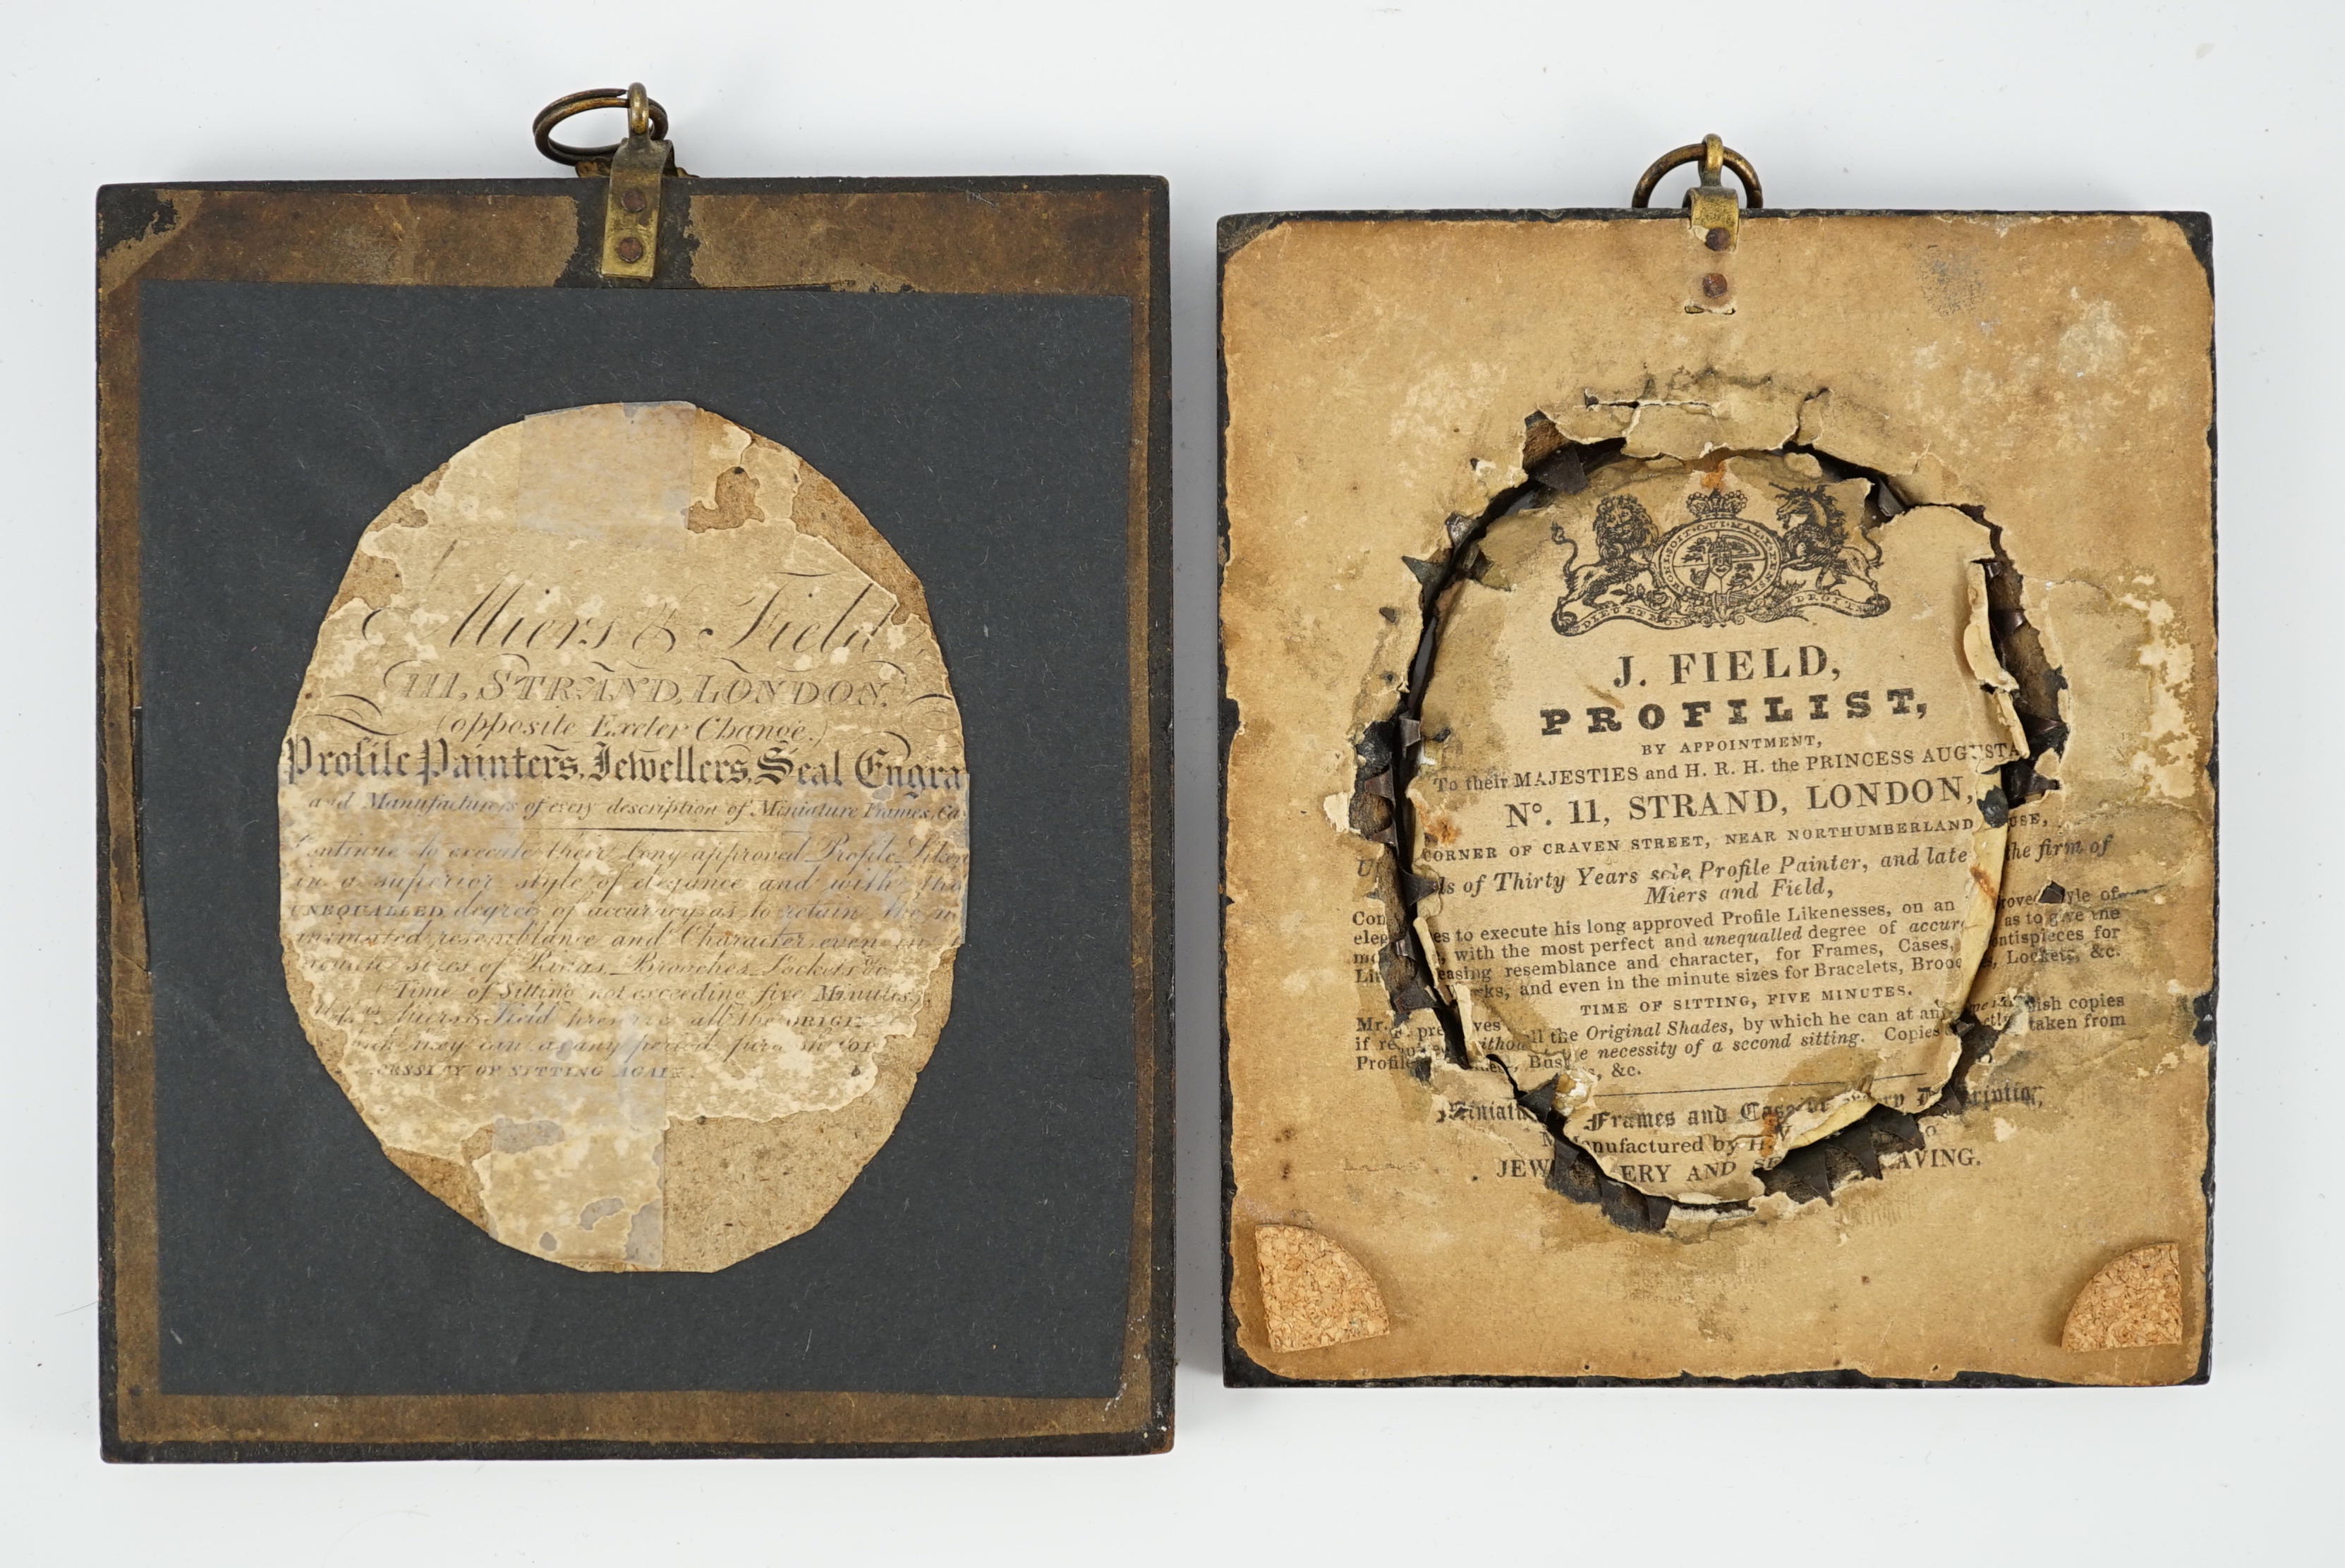 Miers & Field,
111, STRAND, LONDON.
(opposite Exeter Change.)
Profile Painters, Jewellers, Seal Engra
and Manufacturers of every description of Miniature Frames, Ca
Continue to execute their long approved Profile Liken
in a superior style of elegance and with the
UNEQUALLED degree of accuracy as to retain the m
animated resemblance and Character even in
minute sizes of Rings, Brooches, Lockets &c.
(Time of Sitting not exceeding five Minutes.)
Miers & Field preserve all the ORIGI
they can at any period
CESSITY OF SITTING AGAIN.
HONI SOIT QUI MAL Y PENSE
DIEU ET MON DROIT
J. FIELD,
PROFILIST,
BY APPOINTMENT,
To their MAJESTIES and H. R. H. the PRINCESS AUGUSTA
No. 11, STRAND, LONDON,
CORNER OF CRAVEN STREET, NEAR NORTHUMBERLAND USE,
ds of Thirty Years sole Profile Painter, and late the firm of
Miers and Field,
Con es to execute his long approved Profile Likenesses, on an roved style of
eleg , with the most perfect and unequalled degree of accur as to give the
easing resemblance and character, for Frames, Cases, ontispieces for
ks, and even in the minute sizes for Bracelets, Brooc s, Lockets, &c.
TIME OF SITTING, FIVE MINUTES.
Mr. pre ves all the Original Shades, by which he can at an nish copies
if re ithou the necessity of a second sitting. Copies ctly taken from
Profile , Bus s, &c.
Miniatu Frames and Case of every Description,
M nufactured by
JEW ERY AND SE AVING.